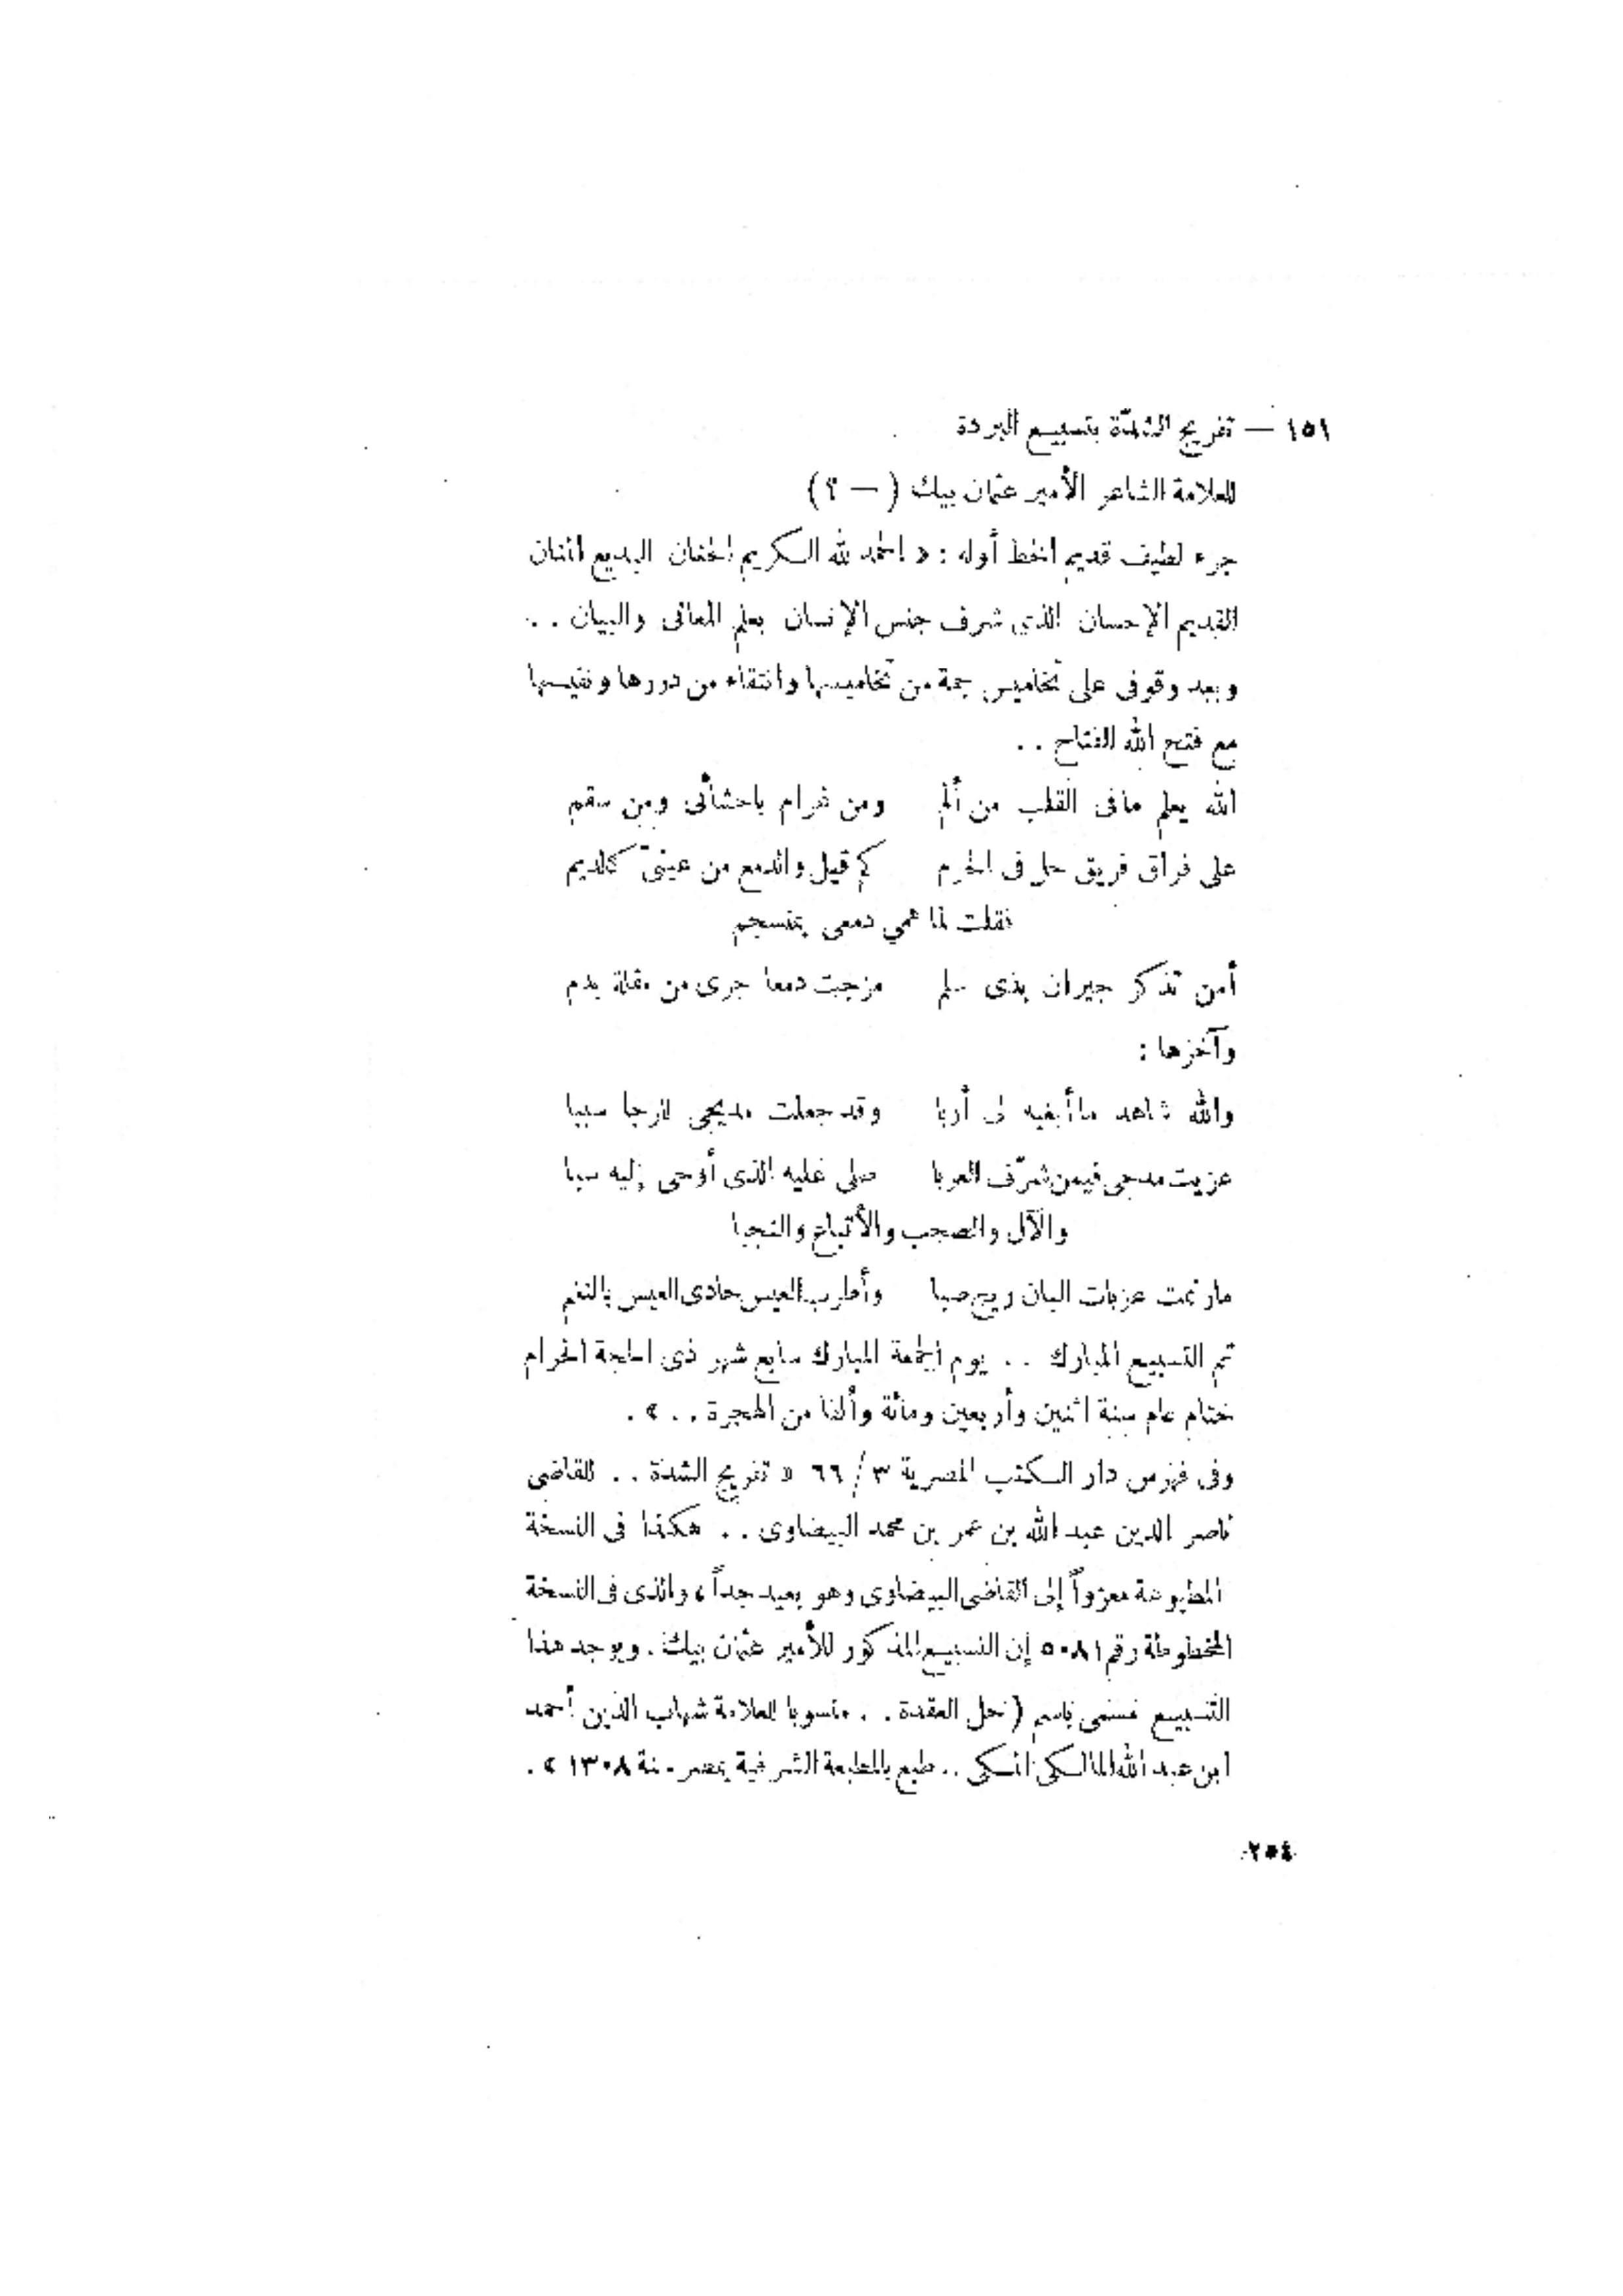 ١٥١ — تفريج الشدّة بتسبيع البردة
للعلامة الشاعر الأمير عثمان بيك ( — ؟ )
جزء لطيف قديم الخط أوله : « الحمد لله الكريم الحنان البديع المنان
القديم الإحسان الذي شرف جنس الإنسان بعلم المعانى والبيان . .
وبعد وقوفى على تخاميس جمة من تخاميسها وانتقاء من دررها ونفيسها
مع فتح الله الفتاح . .
الله يعلم مافى القلب من ألم ومن غرام باحشائى ومن سقم
على فراق فريق حل فى الحرم كم قيل والدمع من عينىّ كالديم
فقلت لما همي دمعى بمنسجم
أمن تذكر جيران بذى سلم مزجت دمعا جرى من مقلة بدم
وآخرها :
والله شاهد ماأبغيه لى أربا وقد جعلت مديحى للرجا سببا
عزيت مدحى فيمن شرّف العربا صلى عليه الذى أوحى إليه سبا
والآل والصحب والأتباع والنجبا
مارنحت عزبات البان ريح صبا وأطرب العيس حادى العيس بالنغم
تم التسبيع المبارك . . يوم الجمعة المبارك سابع شهر ذى الحجة الحرام
ختام عام سنة اثنين وأربعين ومائة وألفا من الهجرة . . » .
وفى فهرس دار الكتب المصرية ٣ / ٦٦ « تفريج الشدة . . للقاضى
ناصر الدين عبد الله بن عمر بن محمد البيضاوى . . هكذا فى النسخة
المطبوعة معزواً إلى القاضى البيضاوى وهو بعيد جداً ، والذى فى النسخة
المخطوطة رقم ٥٠٨١ إن التسبيع المذكور للأمير عثمان بيك . ويوجد هذا
التسبيع مسمى باسم ( حل العقدة . . منسوبا للعلامة شهاب الدين أحمد
ابن عبد الله المالكى المكى . . طبع بالمطبعة الشرفية بمصر سنة ١٣٠٨ » .
٢٥٤